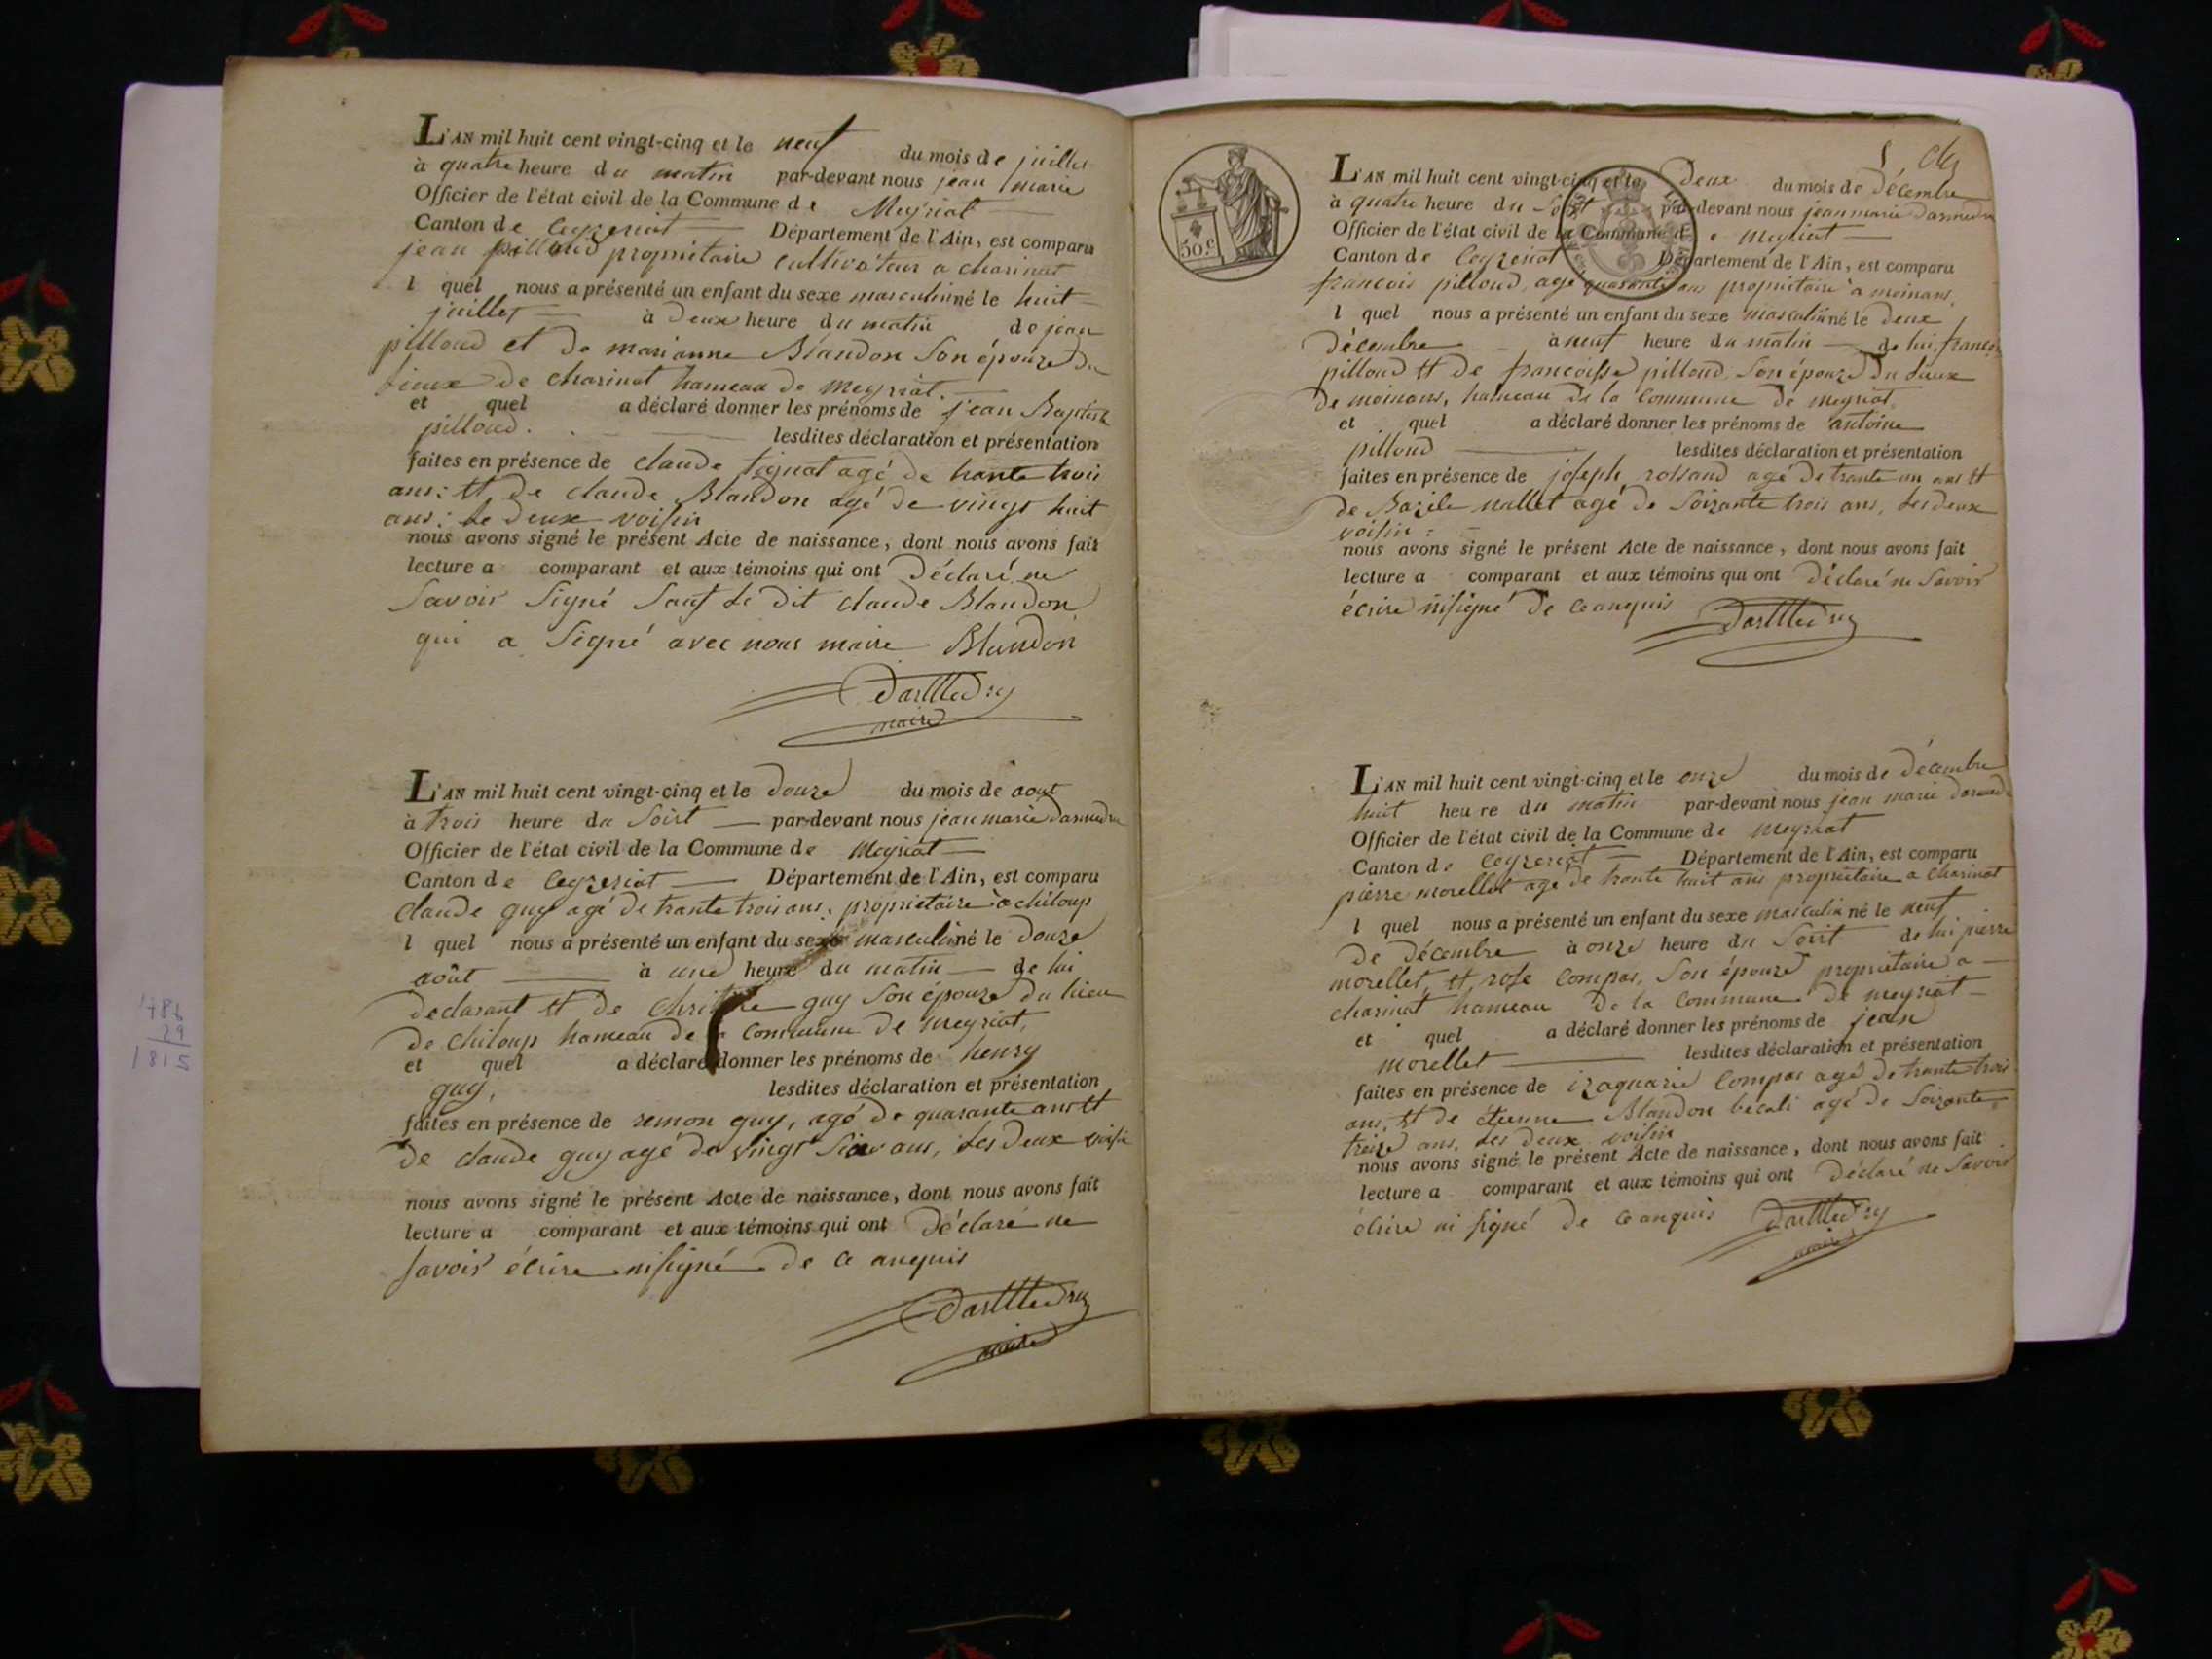 L'AN mil huit cent vingt-cinq et le neuf du mois de juillet
à quatre heure du matin par-devant nous jean marie
Officier de l'état civil de la Commune de Meyriat
Canton de Ceyzeriat Département de l'Ain, est comparu
jean pilloud propriétaire cultivateur a charinat
l quel nous a présenté un enfant du sexe masculin né le huit
juillet à deux heure du matin de jean
pilloud et de marianne Blandon son épouze du
lieux de charinat hameau de meyriat.
et quel a déclaré donner les prénoms de jean Baptiste
pilloud. lesdites déclaration et présentation
faites en présence de claude agé de trante trois
ans: et de claude Blandon agé de vingt huit
ans: le deux voisin
nous avons signé le présent Acte de naissance, dont nous avons fait
lecture a comparant et aux témoins qui ont déclaré ne
savoir signé sauf le dit claude Blandon
qui a signé avec nous maire Blandon
maire
L'AN mil huit cent vingt-cinq et le douze du mois de aout
à trois heure du soirt par-devant nous jean marie
Officier de l'état civil de la Commune de Meyriat
Canton de Ceyzeriat Département de l'Ain, est comparu
claude guy agé de trante trois ans, proprietaire à chiloup
l quel nous a présenté un enfant du sexe masculin né le douze
août à une heure du matin de lui
declarant et de guy son épouze du lieu
de chiloup hameau de la commune de meyriat,
et quel a déclaré donner les prénoms de henry
guy, lesdites déclaration et présentation
faites en présence de remon guy, agé de quarante ans et
de claude guy agé de vingt ans, les deux voisin
nous avons signé le présent Acte de naissance, dont nous avons fait
lecture a comparant et aux témoins qui ont déclaré ne
savoir écrire ni signé de ce anquis
maire
50.c
L'AN mil huit cent vingt-cinq et le deux du mois de décembre
à quatre heure du soirt par-devant nous jean marie
Officier de l'état civil de la Commune de meyriat
Canton de Ceyzeriat Département de l'Ain, est comparu
francois pilloud, agé quarante ans propriétaire à moinans,
l quel nous a présenté un enfant du sexe masculin né le deux
décembre à neuf heure du matin de lui, francois
pilloud et de francoisse pilloud, son épouze du lieux
de moinans, hameau de la commune de meyriat,
et quel a déclaré donner les prénoms de antoine
pilloud lesdites déclaration et présentation
faites en présence de joseph rossand agé de trante un ans et
de Bazile nallet agé de soixante trois ans, les deux
voisin
nous avons signé le présent Acte de naissance, dont nous avons fait
lecture a comparant et aux témoins qui ont déclaré ne savoir
écrire ni signé de ce anquis
L'AN mil huit cent vingt-cinq et le onze du mois de décembre
huit heure du matin par-devant nous jean marie
Officier de l'état civil de la Commune de meyriat
Canton de Ceyzeriat Département de l'Ain, est comparu
pierre morellet agé de trante huit ans propriétaire a charinat
l quel nous a présenté un enfant du sexe masculin né le neuf
de décembre à onze heure du soirt de lui pierre
morellet, et rose compas, son épouze propriétaire a
charinat hameau de la commune de meyriat
et quel a déclaré donner les prénoms de jean
morellet lesdites déclaration et présentation
faites en présence de izaquarie compas agé de trante trois
ans, et de étienne Blandon becali agé de soixante
treize ans, les deux voisin
nous avons signé le présent Acte de naissance, dont nous avons fait
lecture a comparant et aux témoins qui ont déclaré ne savoir
écrire ni signé de ce anquis
maire
1786
29
1815